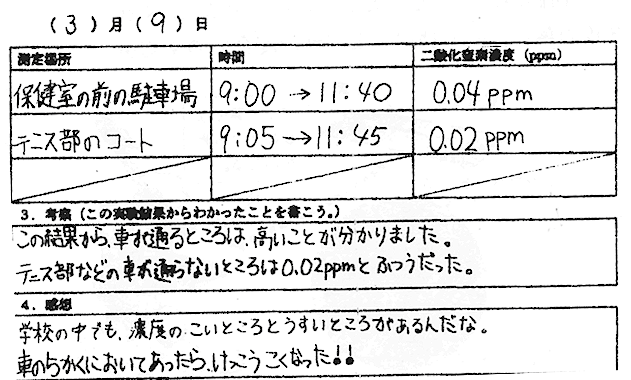 (3)月(9)日
測定場所 時間 二酸化窒素濃度 (ppm)
保健室の前の駐車場 9:00→11:40 0.04ppm
テニス部のコート 9:05→11:45 0.02ppm
3. 考察(この実験結果からわかったことを書こう。)
この結果から、車が通るところは、高いことが分かりました。
テニス部などの車が通らないところは0.02ppmとふつうだった。
4. 感想
学校の中でも、濃度のこいところとうすいところがあるんだな。
車のちかくにおいてあったら、けっこうこくなった!!